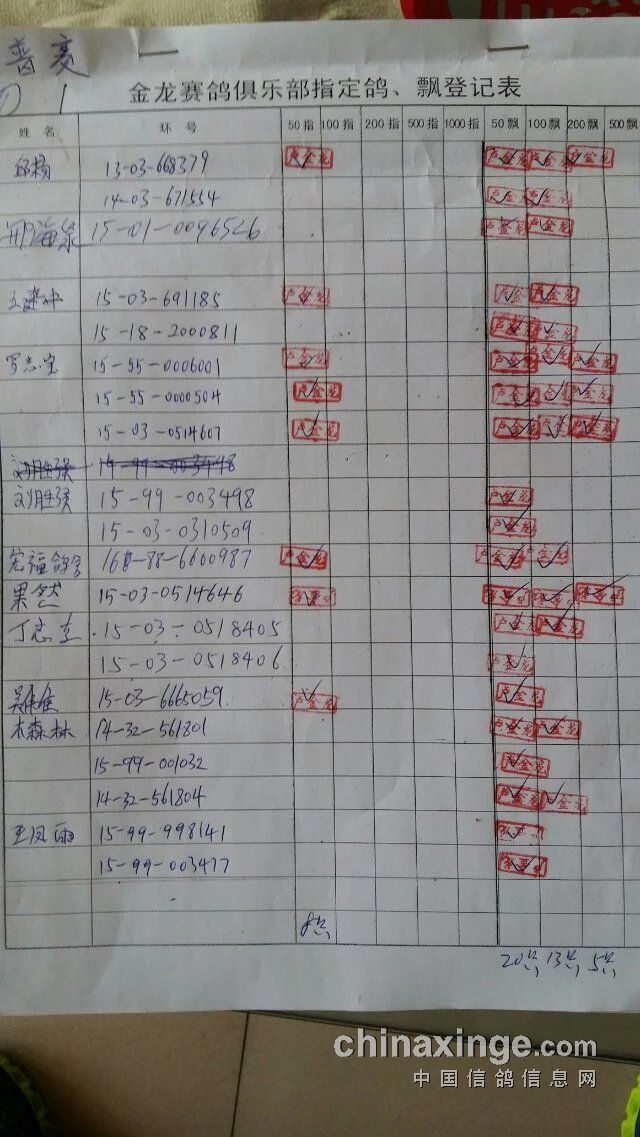 普赛
01
金龙赛鸽俱乐部指定鸽、飘登记表
姓名 环号 50指 100指 200指 500指 1000指 50飘 100飘 200飘 500飘
13-03-668379 卢金龙 卢金龙 卢金龙 卢金龙
14-03-671554 卢金龙 卢金龙
邢海泉 15-01-0096526 卢金龙 卢金龙
王建冲 15-03-691185 卢金龙 卢金龙 卢金龙
15-18-2000811 卢金龙 卢金龙
罗志宝 15-55-0006001 卢金龙 卢金龙 卢金龙 卢金龙
15-55-0000504 卢金龙 卢金龙 卢金龙 卢金龙
15-03-0514607 卢金龙 卢金龙 卢金龙 卢金龙
刘胜强 15-99-003498 卢金龙
15-03-0310509 卢金龙
宪福鸽舍 16-88-6600987 卢金龙 卢金龙 卢金龙
果然 15-03-0514646
丁志立 15-03-0518405 卢金龙 卢金龙
15-03-0518406 卢金龙
15-03-6665059 卢金龙 卢金龙
木森林 14-32-561801 卢金龙 卢金龙
15-99-001032 卢金龙
14-32-561804 卢金龙 卢金龙
王风雨 15-99-998141
15-99-003477
8只
20只 13只 5只
chinaxinge.com
中国信鸽信息网